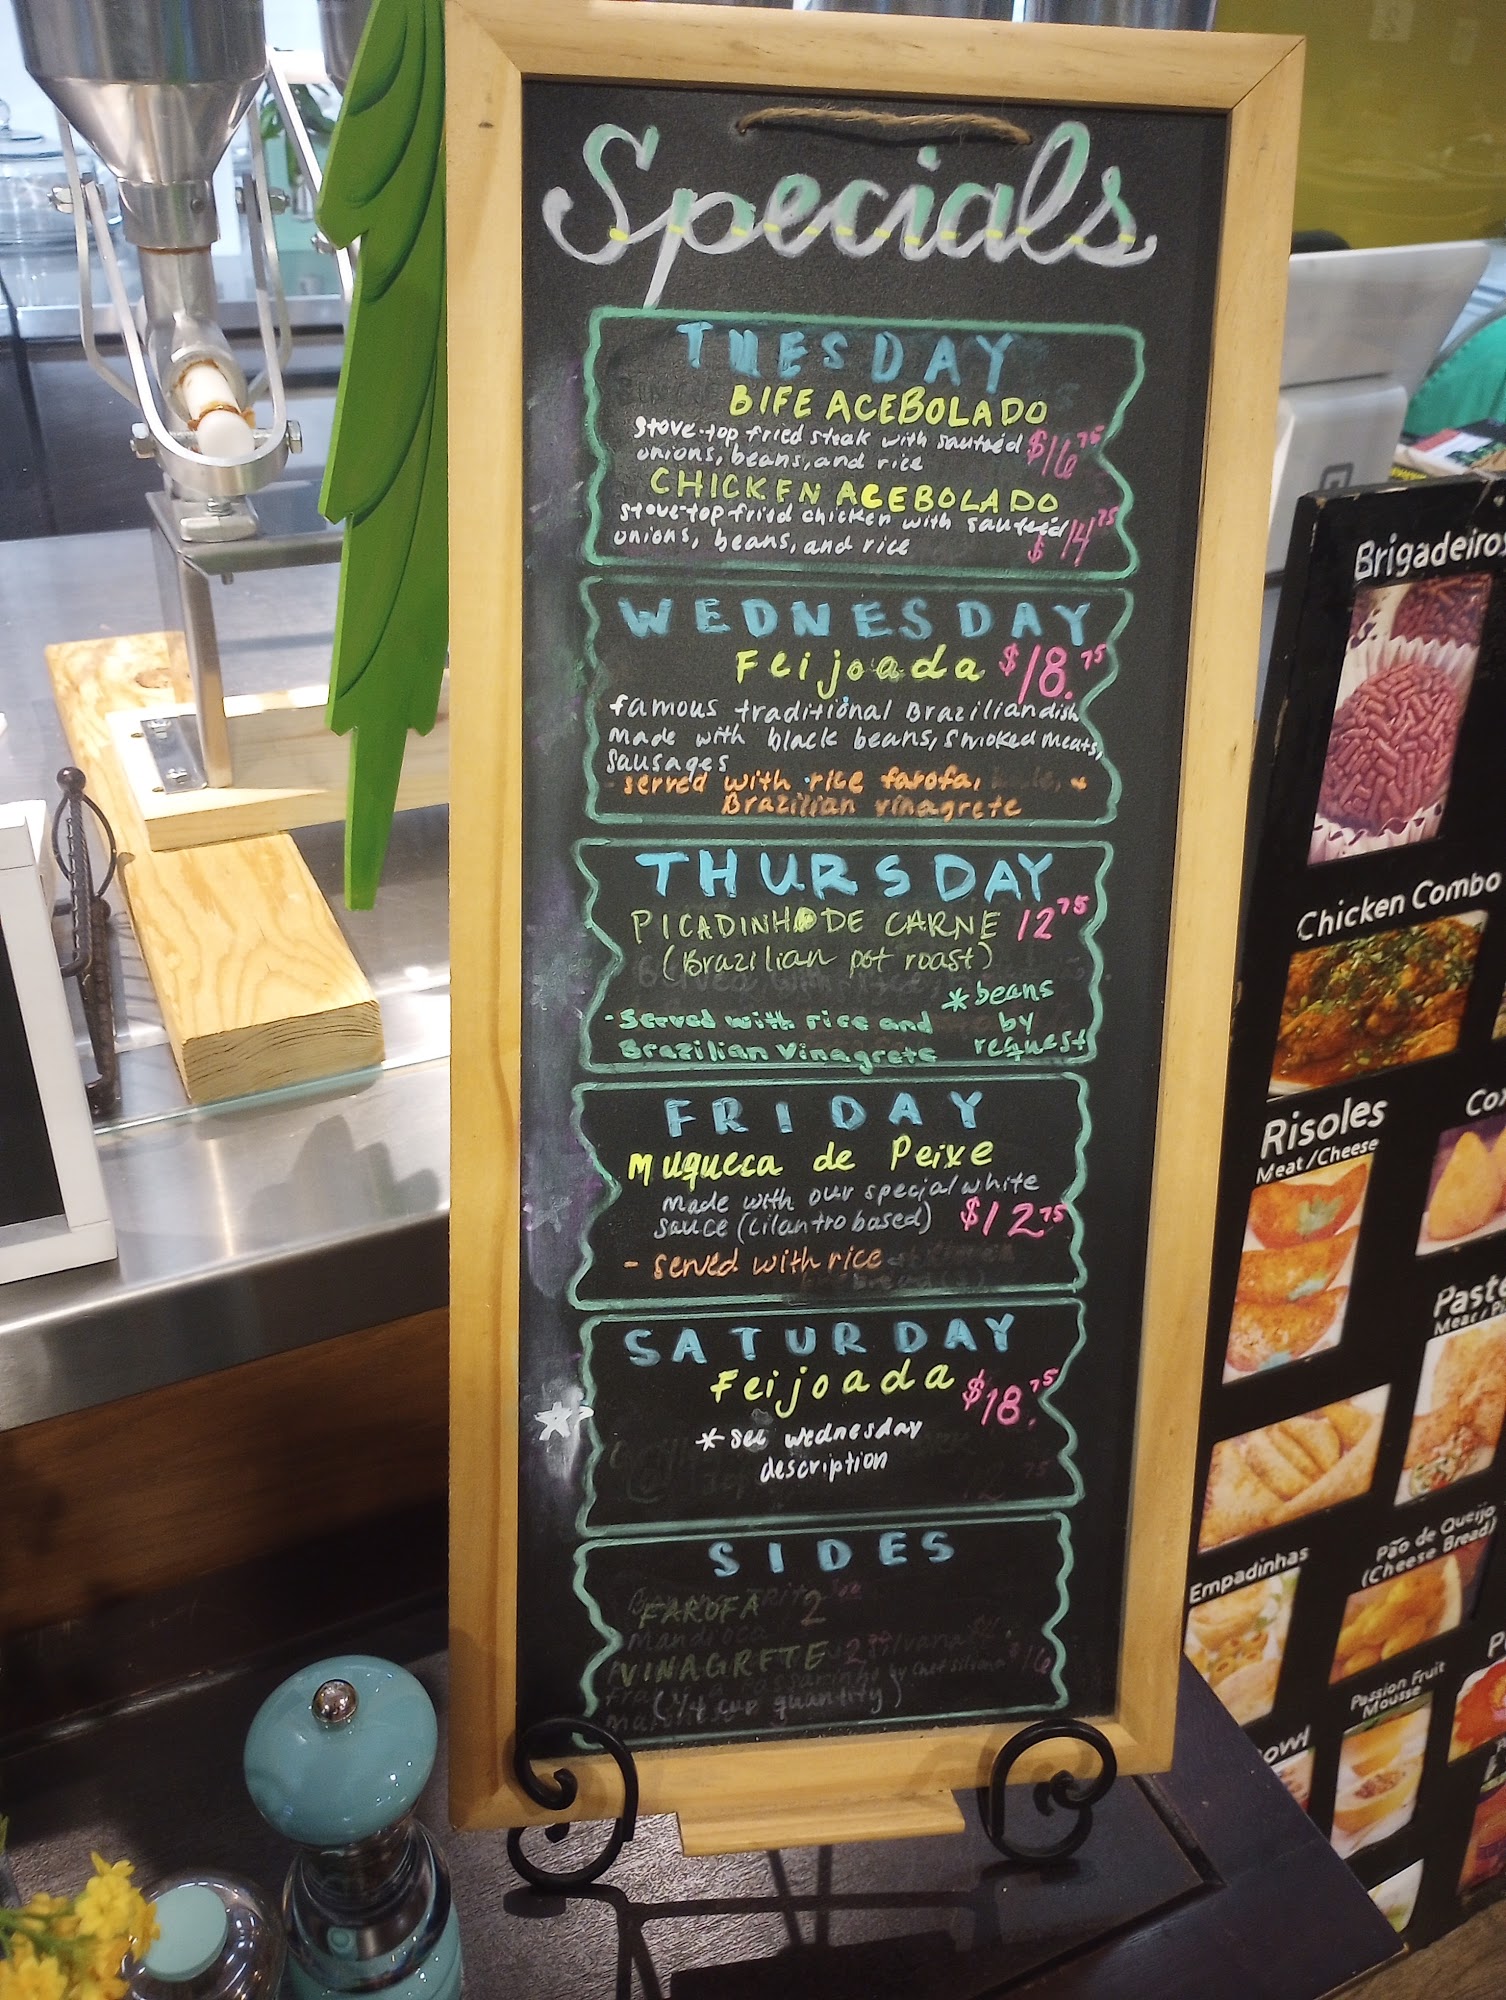 Specials
TUESDAY
BIFE ACEBOLADO
stove-top fried steak with sauteéd $16.75
onions, beans, and rice
CHICKEN ACEBOLADO
stove-top fried chicken with sauteéd
onions, beans, and rice $14.75
WEDNESDAY
Feijoada $18.75
famous traditional Brazilian dish
made with black beans, smoked meats,
sausages
- served with rice farofa, +
Brazilian vinagrete
THURSDAY
PICADINHO DE CARNE 12.75
(Brazilian pot roast)
*beans
by
request
- Served with rice and
Brazilian Vinagrete
FRIDAY
Muqueca de Peixe
made with our special white
sauce (cilantro based) $12.75
- served with rice
SATURDAY
Feijoada $18.75
*see wednesday
description
SIDES
FAROFA 2
VINAGRETE 2
(1/4 cup quantity)
Brigadeiros
Chicken Combo
Risoles
Meat/Cheese
Empadinhas
Pão de Queijo
(Cheese Bread)
Passion Fruit
Mousse